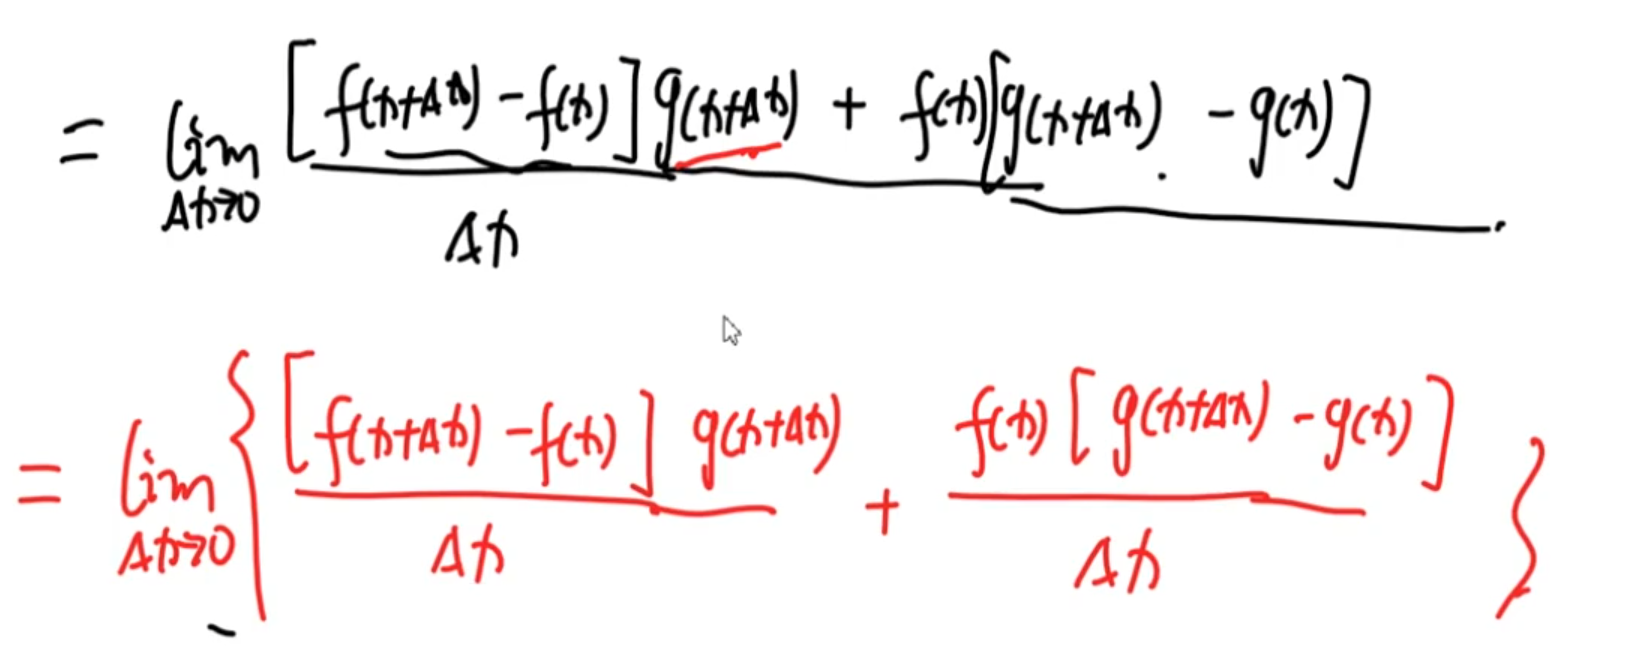 = lim Δx→0 [f(x+Δx) - f(x)] g(x+Δx) + f(x)[g(x+Δx) - g(x)]
Δx
= lim Δx→0 { [f(x+Δx) - f(x)] g(x+Δx) / Δx + f(x) [g(x+Δx) - g(x)] / Δx }